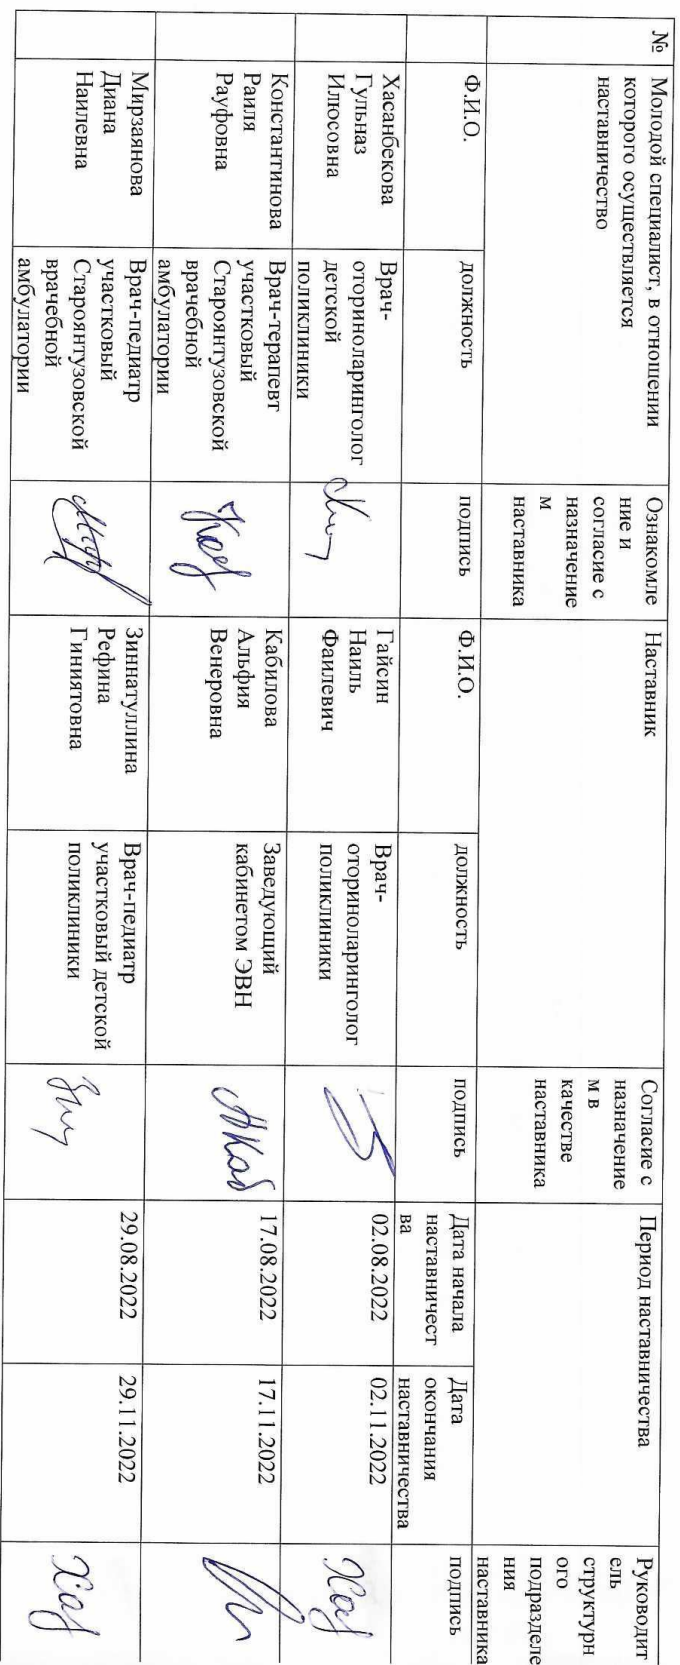 №
Молодой специалист, в отношении
которого осуществляется
наставничество
Ознакомле
ние и
согласие с
назначение
м
наставника
Наставник
Согласие с
назначение
м в
качестве
наставника
Период наставничества
Руководит
ель
структурн
ого
подразделе
ния
наставника
Ф.И.О.
должность
подпись
Ф.И.О.
должность
подпись
Дата начала
наставничест
ва
Дата
окончания
наставничества
подпись
Хасанбекова
Гульназ
Илюсовна
Врач-
оториноларинголог
детской
поликлиники
Гайсин
Наиль
Фаилевич
Врач-
оториноларинголог
поликлиники
02.08.2022
02.11.2022
Константинова
Раиля
Рауфовна
Врач-терапевт
участковый
Староянтузовской
врачебной
амбулатории
Кабилова
Альфия
Венеровна
Заведующий
кабинетом ЭВН
17.08.2022
17.11.2022
Мирзаянова
Диана
Наилевна
Врач-педиатр
участковый
Староянтузовской
врачебной
амбулатории
Зиннатуллина
Рефина
Гиниятовна
Врач-педиатр
участковый детской
поликлиники
29.08.2022
29.11.2022